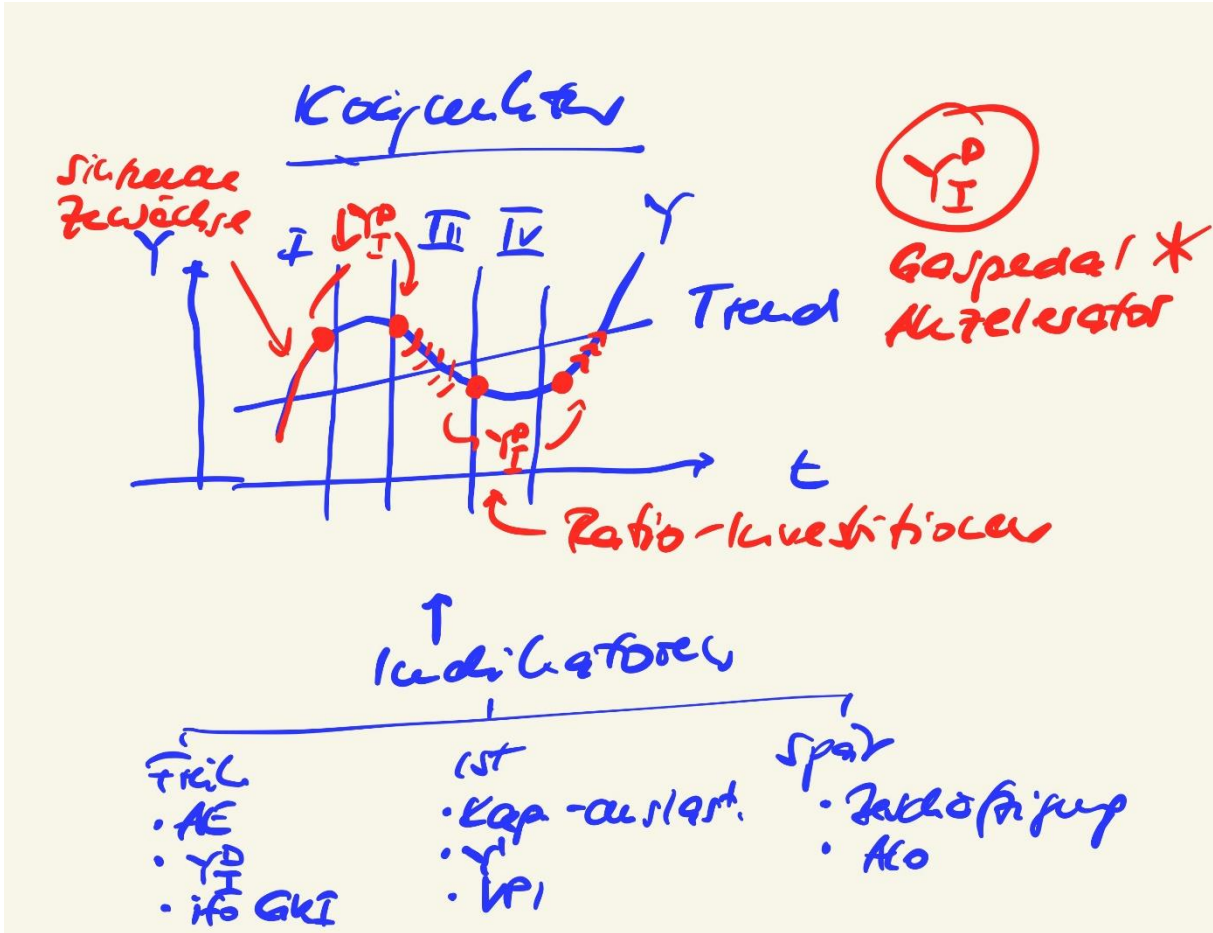 Konjunktur
sinkende
Zuwächse
Y
I
↓Y^D_I
III
IV
Y
Trend
Y^D_I
Gaspedal *
Akzelerator
Y^D_I
t
Ratio-Investitionen
↑
Indikatoren
Früh
• AE
• Y^D_I
• ifo GKI
Ist
• Kap.-auslast.
• Y
• VPI
Spät
• Beschäftigung